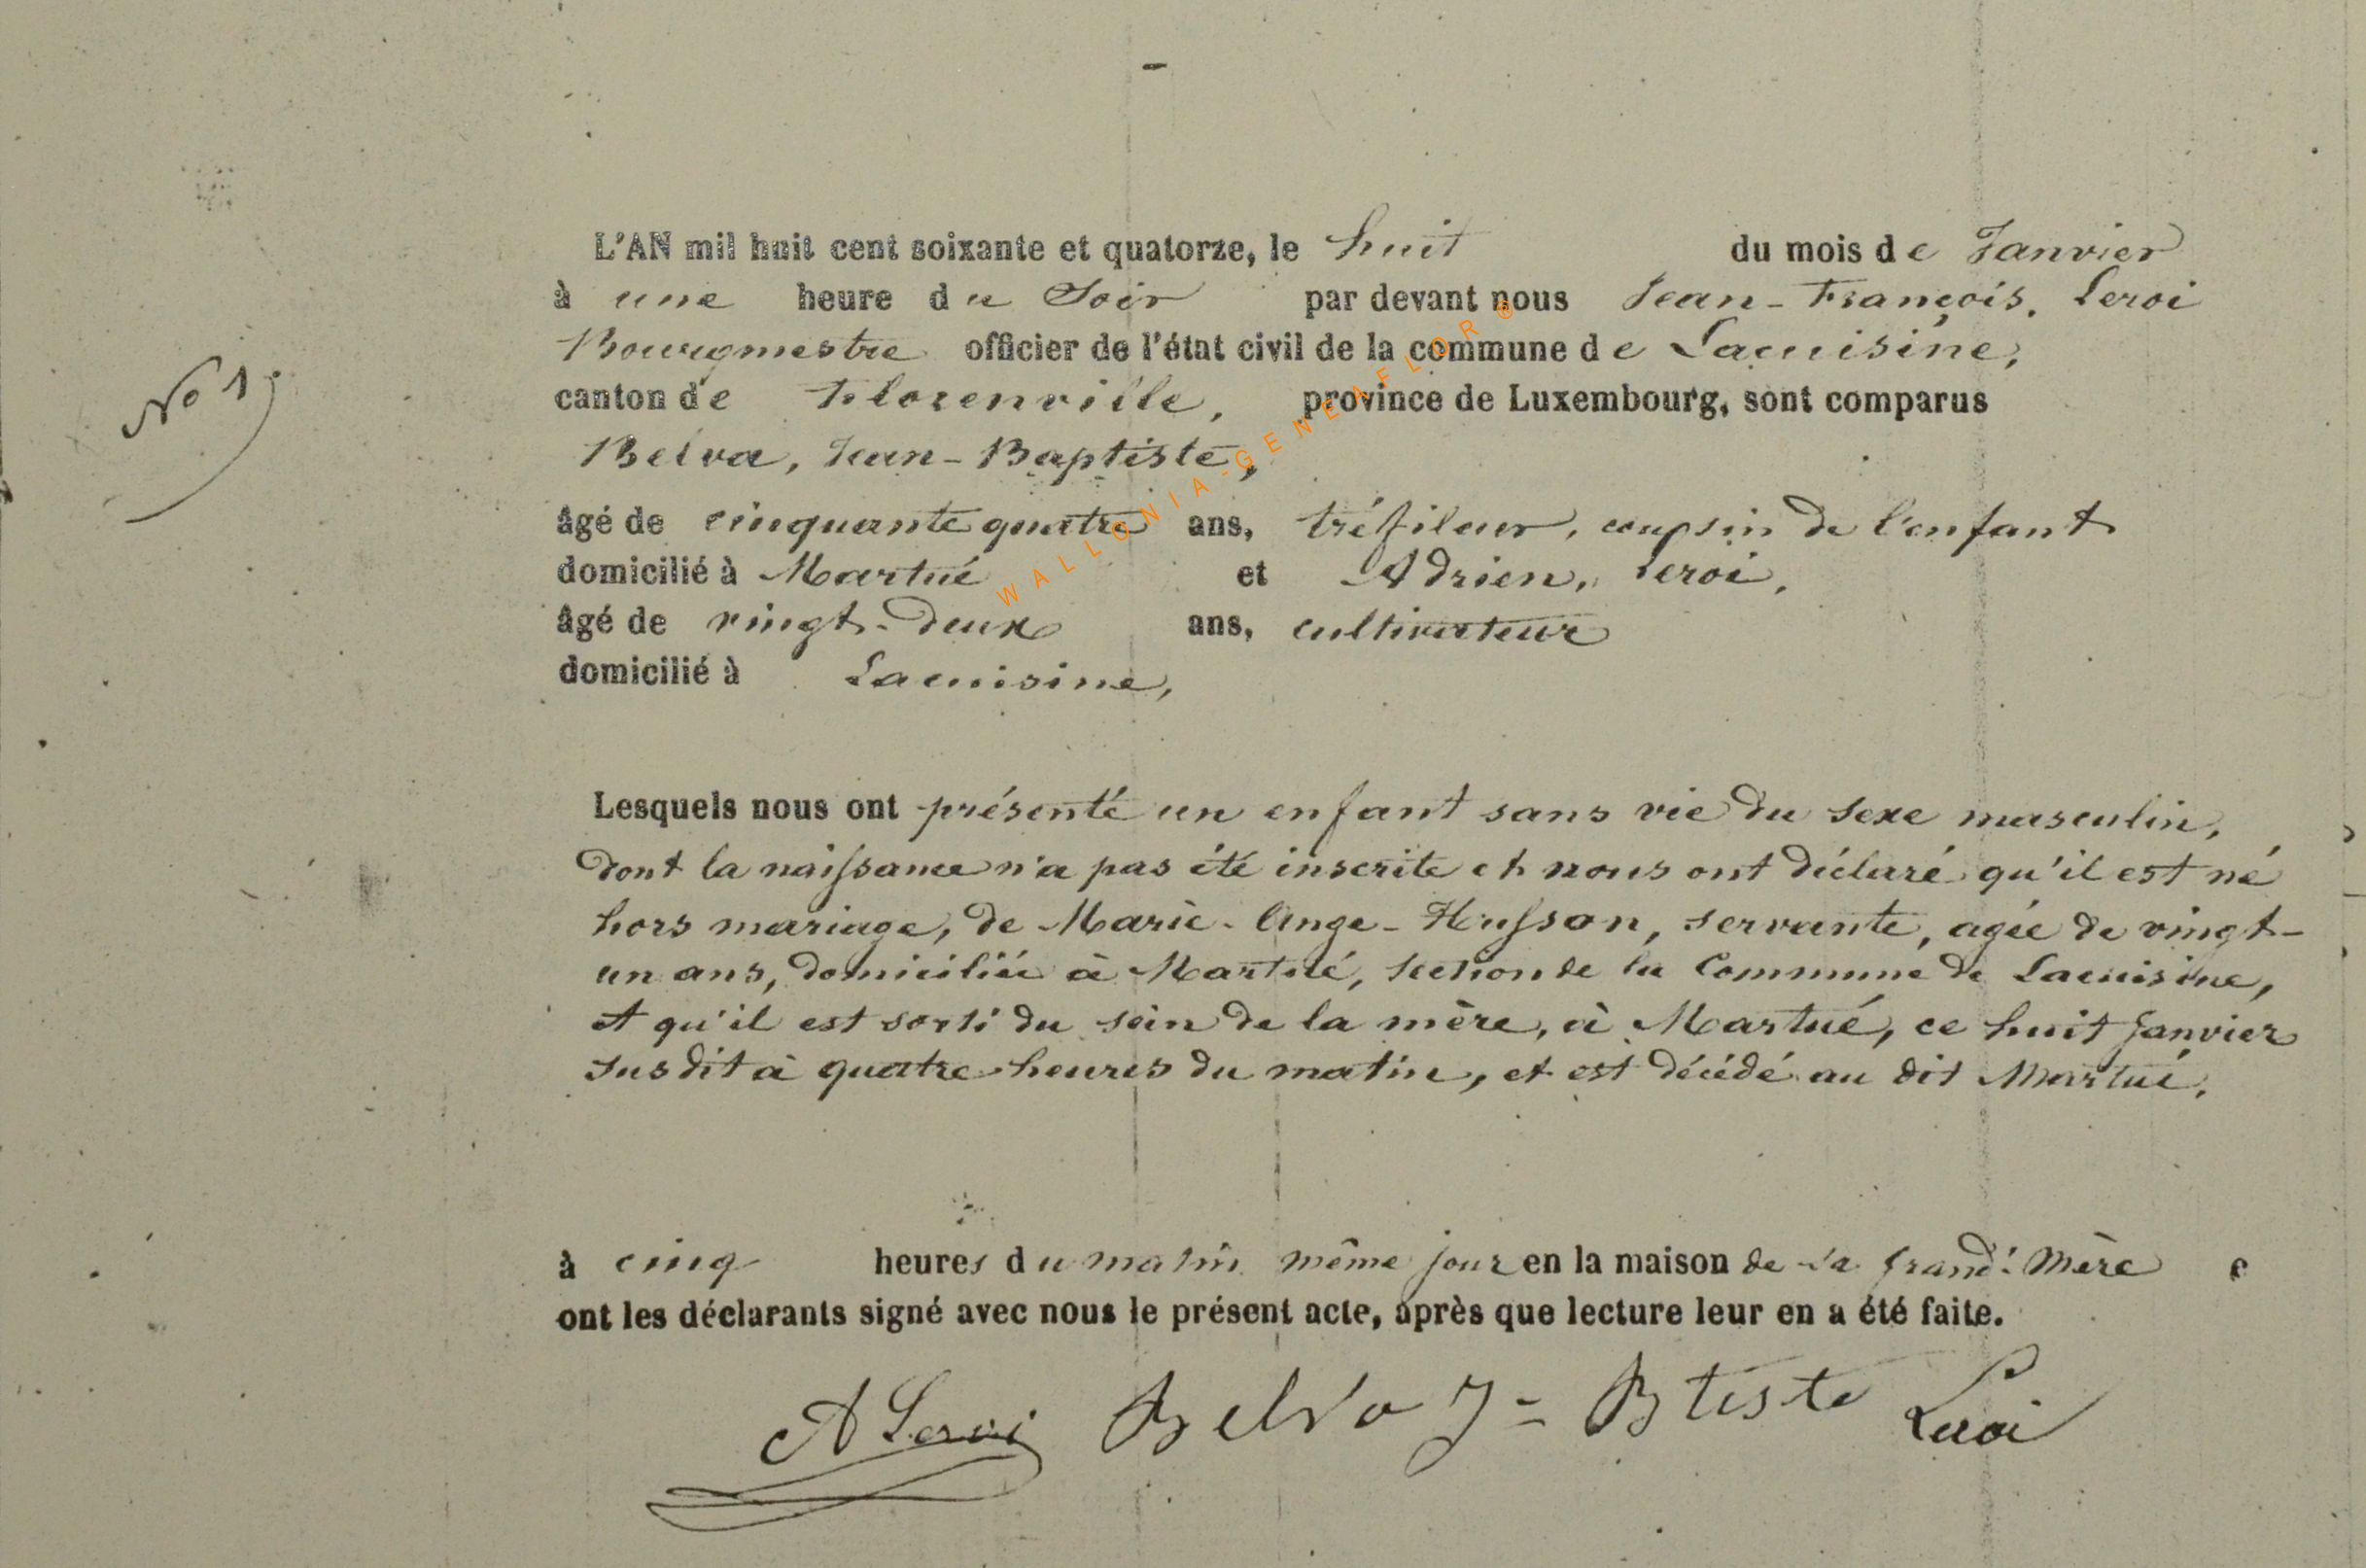 L'AN mil huit cent soixante et quatorze, le huit du mois de Janvier
à une heure du Soir par devant nous Jean-François, Leroi
Bourgmestre officier de l'état civil de la commune de Lacuisine,
canton de Florenville, province de Luxembourg, sont comparus
No 1,
Belva, Jean-Baptiste,
âgé de cinquante quatre ans, tréfileur, cousin de l'enfant
domicilié à Martué et Adrien, Leroi,
âgé de vingt-deux ans, cultivateur
domicilié à Lacuisine,
WALLONIA-GENEAFLOR®
Lesquels nous ont présenté un enfant sans vie du sexe masculin,
dont la naissance n'a pas été inscrite et nous ont déclaré qu'il est né
hors mariage, de Marie-Ange-Husson, servante, agée de vingt-
un ans, domiciliée à Martué, section de la Commune de Lacuisine,
et qu'il est sorti du sein de la mère, à Martué, ce huit Janvier
susdit à quatre heures du matin, et est décédé au dit Martué,
à cinq heures du matin même jour en la maison de sa grand'Mère e
ont les déclarants signé avec nous le présent acte, après que lecture leur en a été faite.
A Leroi Belva J = Btiste Leroi